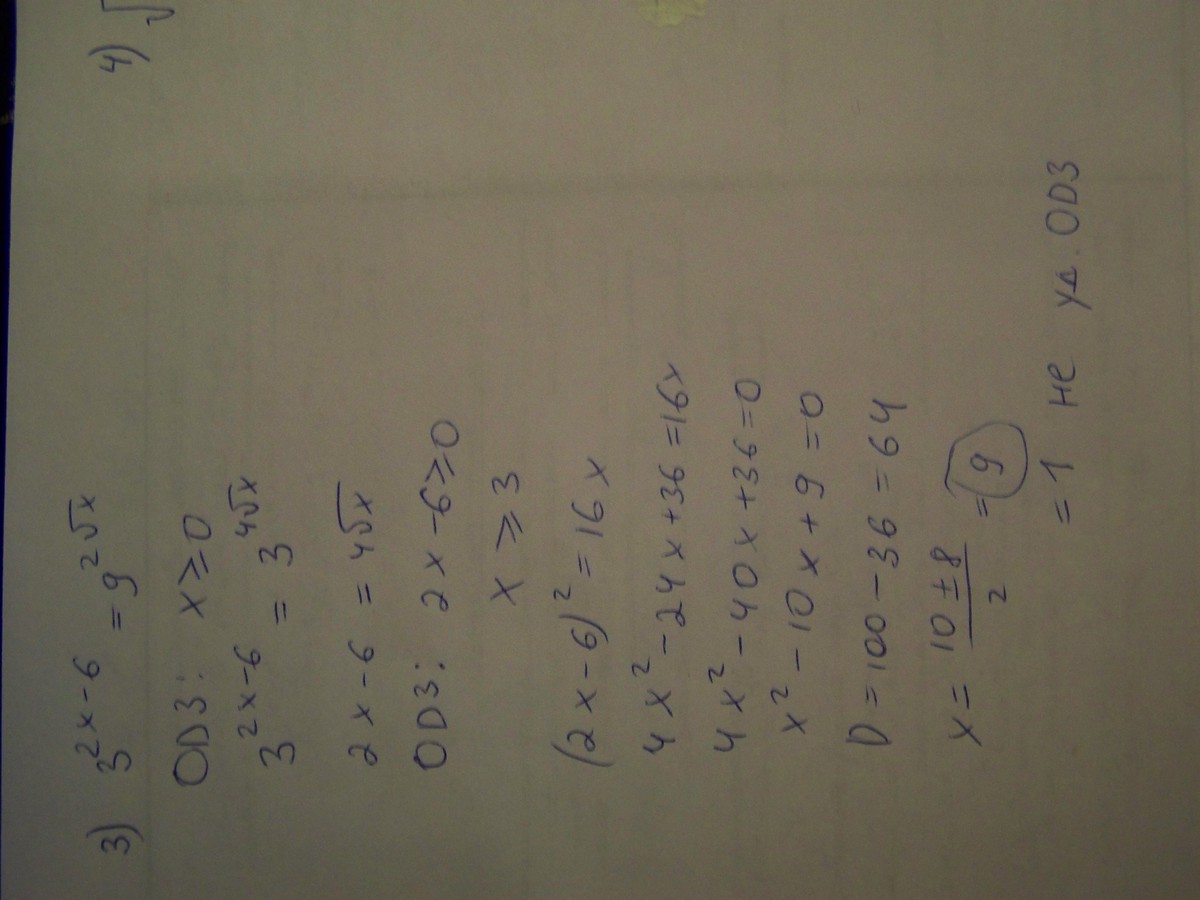 3) 3^{2x-6} = 9^{2√x}
ОDЗ: x ≥ 0
3^{2x-6} = 3^{4√x}
2x - 6 = 4√x
ОDЗ: 2x - 6 ≥ 0
x ≥ 3
(2x - 6)² = 16x
4x² - 24x + 36 = 16x
4x² - 40x + 36 = 0
x² - 10x + 9 = 0
D = 100 - 36 = 64
x = (10 ± 8)/2 = 9
= 1 не уд. ОDЗ
4) √